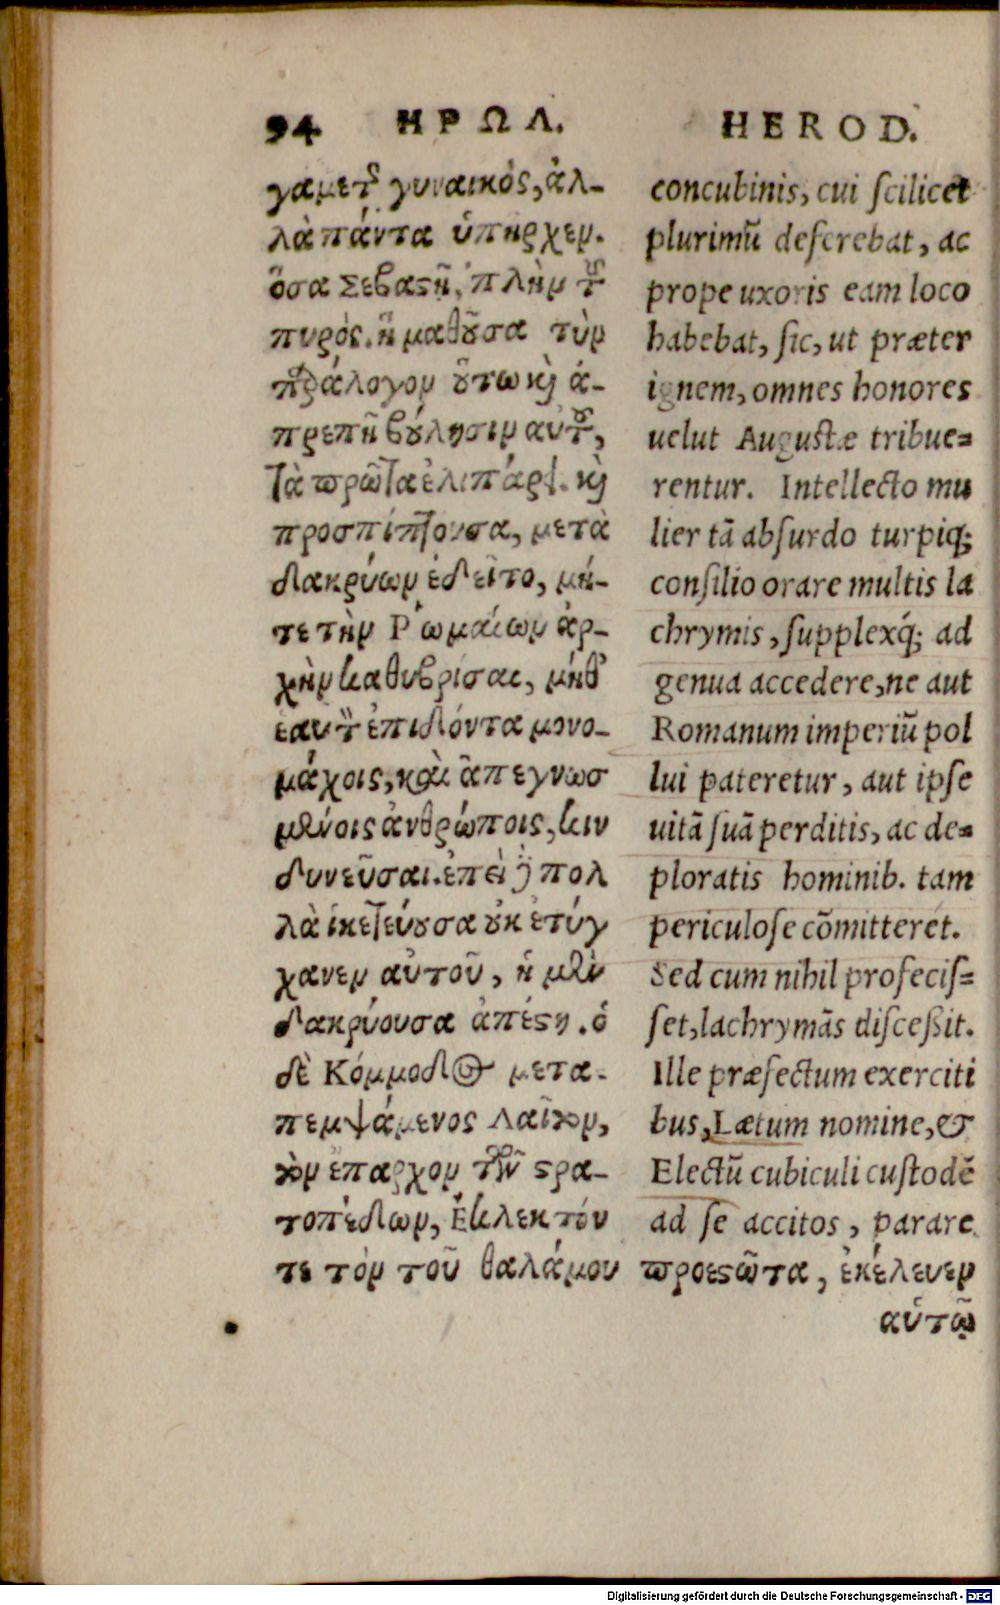 94 ΗΡΩΔ.
γαμετῆς γυναικός, ἀλ-
λὰ πάντα ὑπῆρχεν.
ὅσα Σεβαστῇ, πλὴν τοῦ
πυρός. ἣ μαθοῦσα τὴν
παράλογον οὕτω καὶ ἀ-
πρεπῆ βούλησιν αὐτοῦ,
τὰ πρῶτα ἐλιπάρει. καὶ
προσπίπτουσα, μετὰ
δακρύων ἐδεῖτο, μή-
τε τὴν Ῥωμαίων ἀρ-
χὴν καθυβρίσαι, μήθ'
ἑαυτὸν ἐπιδόντα μονο-
μάχοις, καὶ ἀπεγνωσ
μένοις ἀνθρώποις, κιν
δυνεῦσαι. ἐπεὶ δὲ πολ
λὰ ἱκετεύουσα οὐκ ἐτύγ
χανεν αὐτοῦ, ἡ μὲν
δακρύουσα ἀπέστη. ὁ
δὲ Κόμμοδος μετα-
πεμψάμενος Λαῖτον,
τὸν ἔπαρχον τῶν στρα-
τοπέδων, Ἔκλεκτόν
τε τὸν τοῦ θαλάμου προεστῶτα, ἐκέλευεν
αὑτῷ
HEROD.
concubinis, cui scilicet
plurimũ deferebat, ac
prope uxoris eam loco
habebat, sic, ut præter
ignem, omnes honores
uelut Augustæ tribue=
rentur. Intellecto mu
lier tã absurdo turpiq;
consilio orare multis la
chrymis, supplexq́; ad
genua accedere, ne aut
Romanum imperiũ pol
lui pateretur, aut ipse
uitã suã perditis, ac de=
ploratis hominib. tam
periculose cõmitteret.
Sed cum nihil profecis=
set, lachrymãs discessit.
Ille præfectum exerciti
bus, Lætum nomine, &
Electũ cubiculi custodẽ
ad se accitos, parare
Digitalisierung gefördert durch die Deutsche Forschungsgemeinschaft - DFG